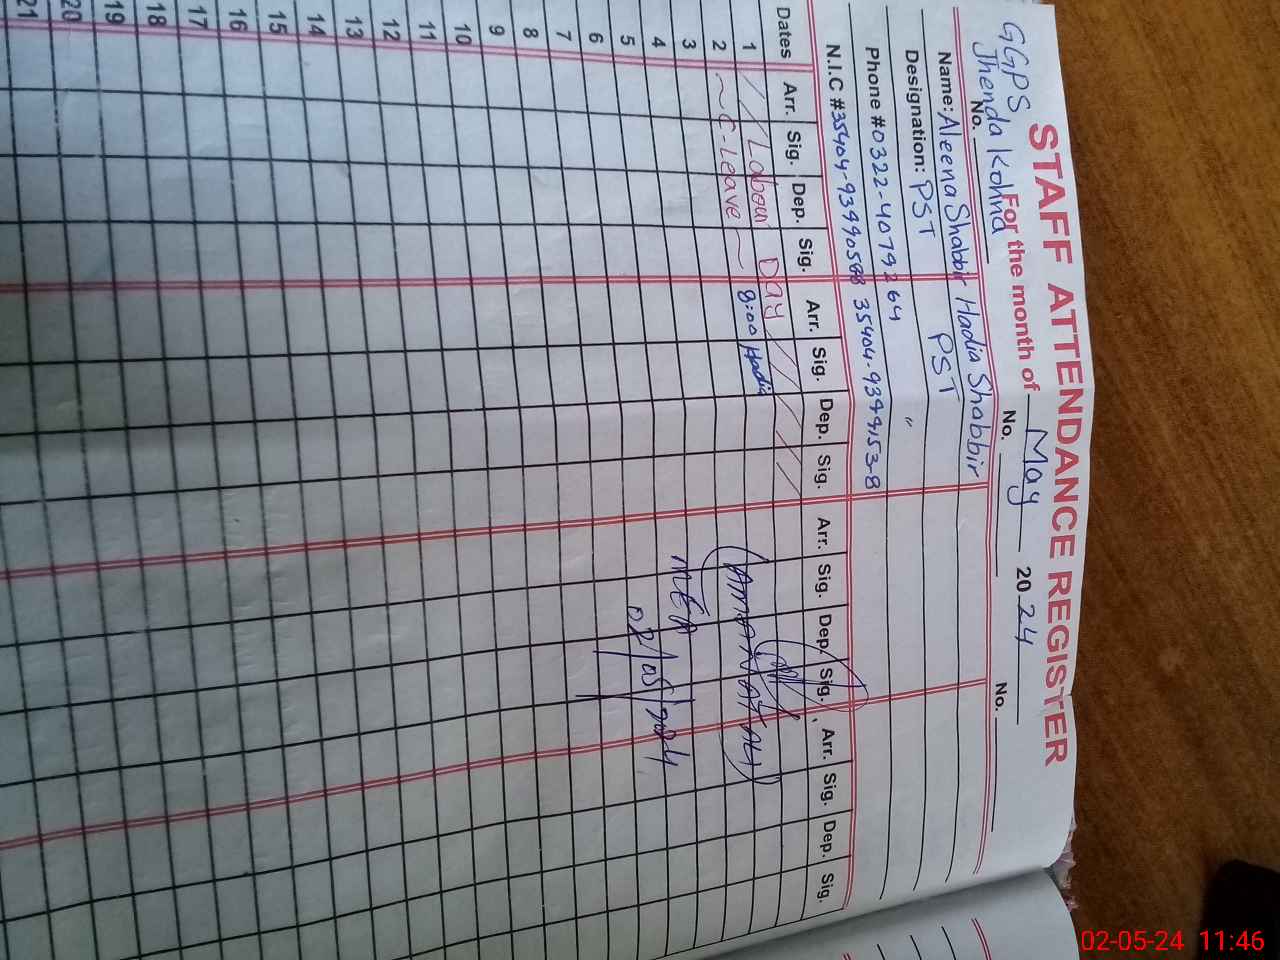 STAFF ATTENDANCE REGISTER
GGPS
Jhenda Kohna
For the month of May 2024
No. No. No.
Name: Aleena Shabbir Hadia Shabbir
Designation: PST PST "
Phone # 0322-4079264
N.I.C # 35404-9399
Dates Arr. Sig. Dep. Sig. Arr. Sig. Dep. Sig. Arr. Sig. Dep. Sig. Arr. Sig. Dep. Sig.
1 Labour Day
2 C-Leave 8:00 Hadia
3
4
5
6
7
8
9
10
11
12
13
14
15
16
17
18
19
20
21
MEA
02/05/2024
02-05-24 11:46